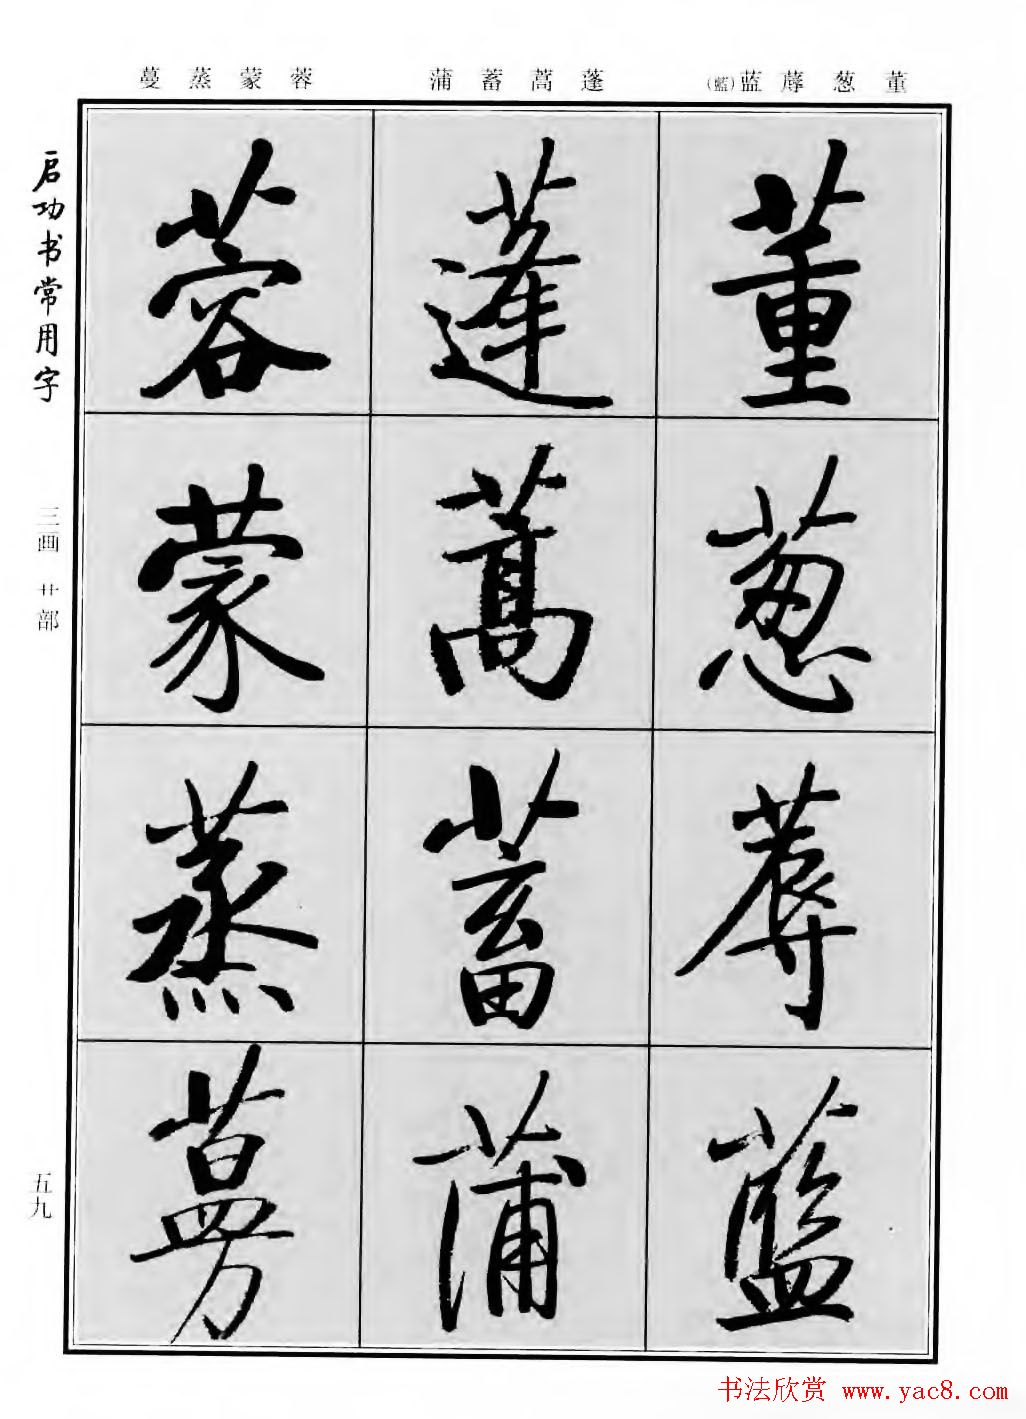 蔓 蒸 蒙 蓉 蒲 蓄 蒿 蓬 (藍)蓝 蓐 葱 董
启功书常用字
三画 艹部
五九
董 葱 蓐 藍
蓬 蒿 蓄 蒲
蓉 蒙 蒸 蔓
书法欣赏 www.yac8.com